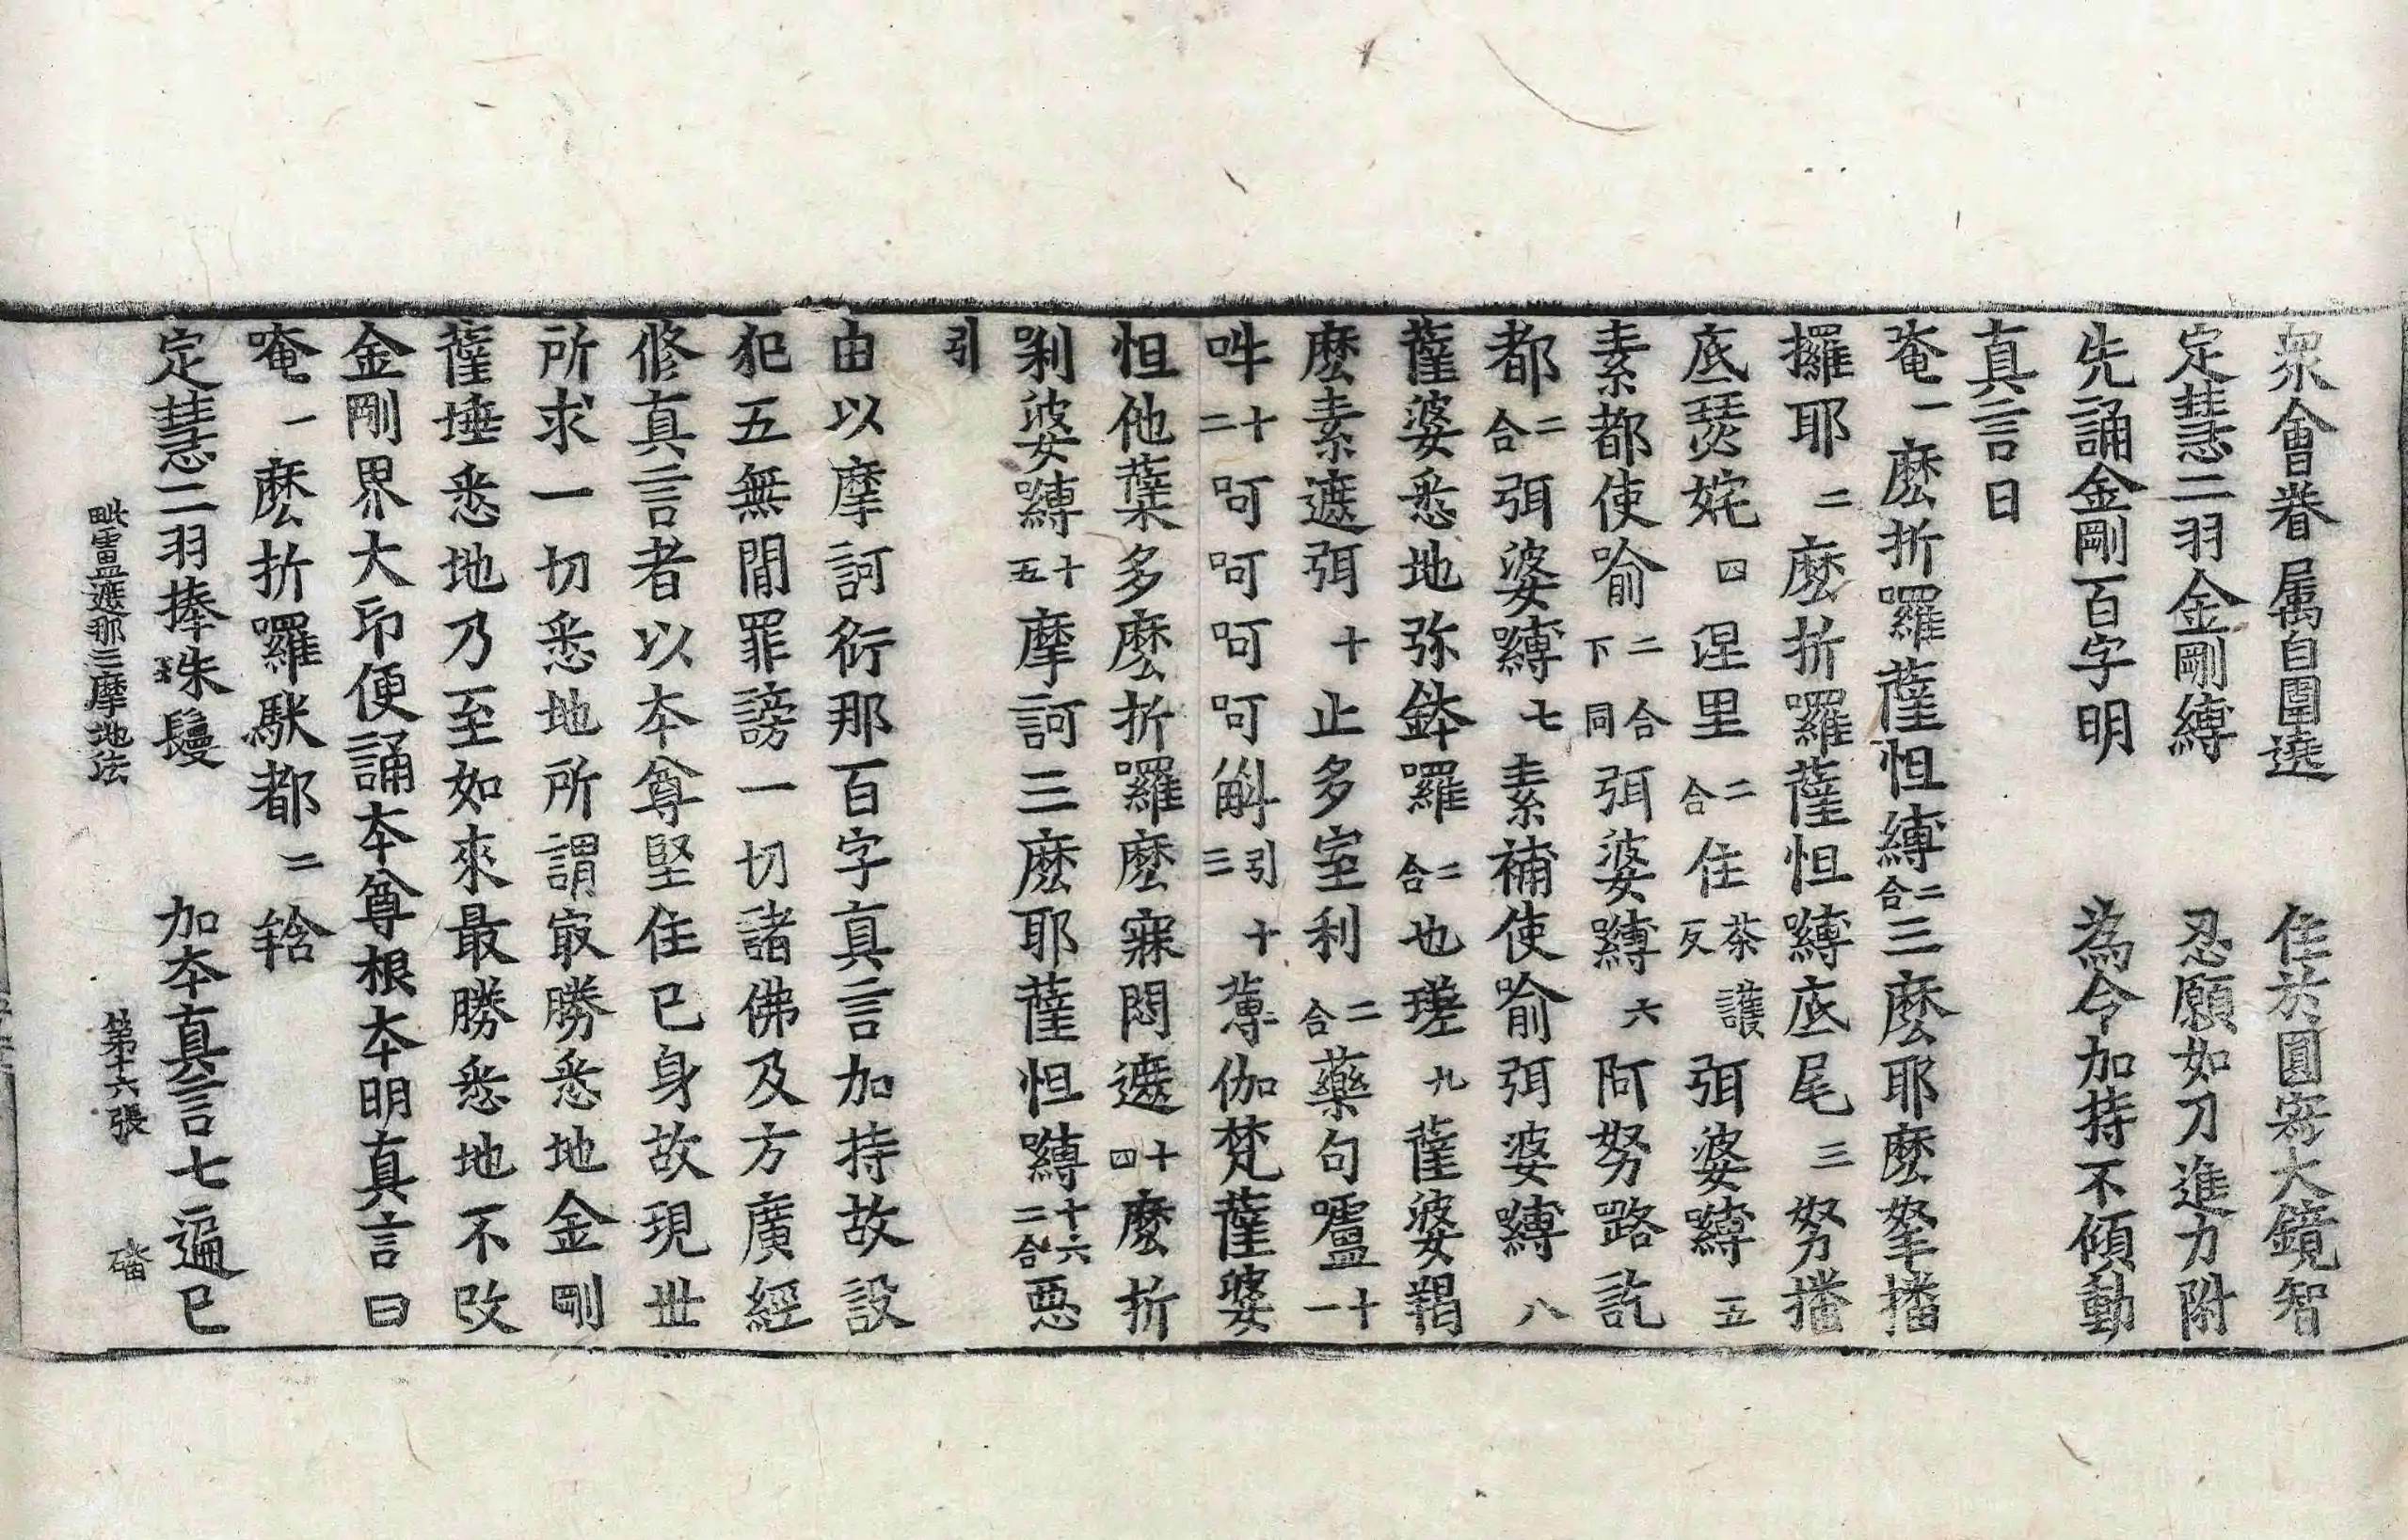 衆會眷属自圍遶 住於圓寂大鏡智
定慧二羽金剛縛 忍願如刀進力附
先誦金剛百字明 為令加持不傾動
真言曰
菴一麽折囉薩怛縛二合三麽耶麽拏播
攞耶二麽折囉薩怛嚩底尾三努播
底瑟姹四涅里二合住茶護反弭婆嚩五
素都使喻二合下同弭婆嚩六阿努路訖
都二合弭婆嚩七素補使喻弭婆嚩八
薩婆悉地弥鉢羅二合也瑳九薩婆羯
麽素遮弭十止多室利二合藥句嚧十一
吽十二呵呵呵呵斛引十三薄伽梵薩婆
怛他蘖多麽折囉麽寐悶遮十四麽折
㗚婆嚩十五摩訶三麽耶薩怛嚩十六二合惡
引
由以摩訶衍那百字真言加持故設
犯五無間罪謗一切諸佛及方廣經
修真言者以本尊堅住己身故現世
所求一切悉地所謂最勝悉地金剛
薩埵悉地乃至如來最勝悉地不改
金剛界大印便誦本尊根本明真言曰
唵一麽折囉馱都二鋡
定慧二羽捧珠鬘 加本真言七遍已
毗盧遮那三摩地法 第十六張 磻